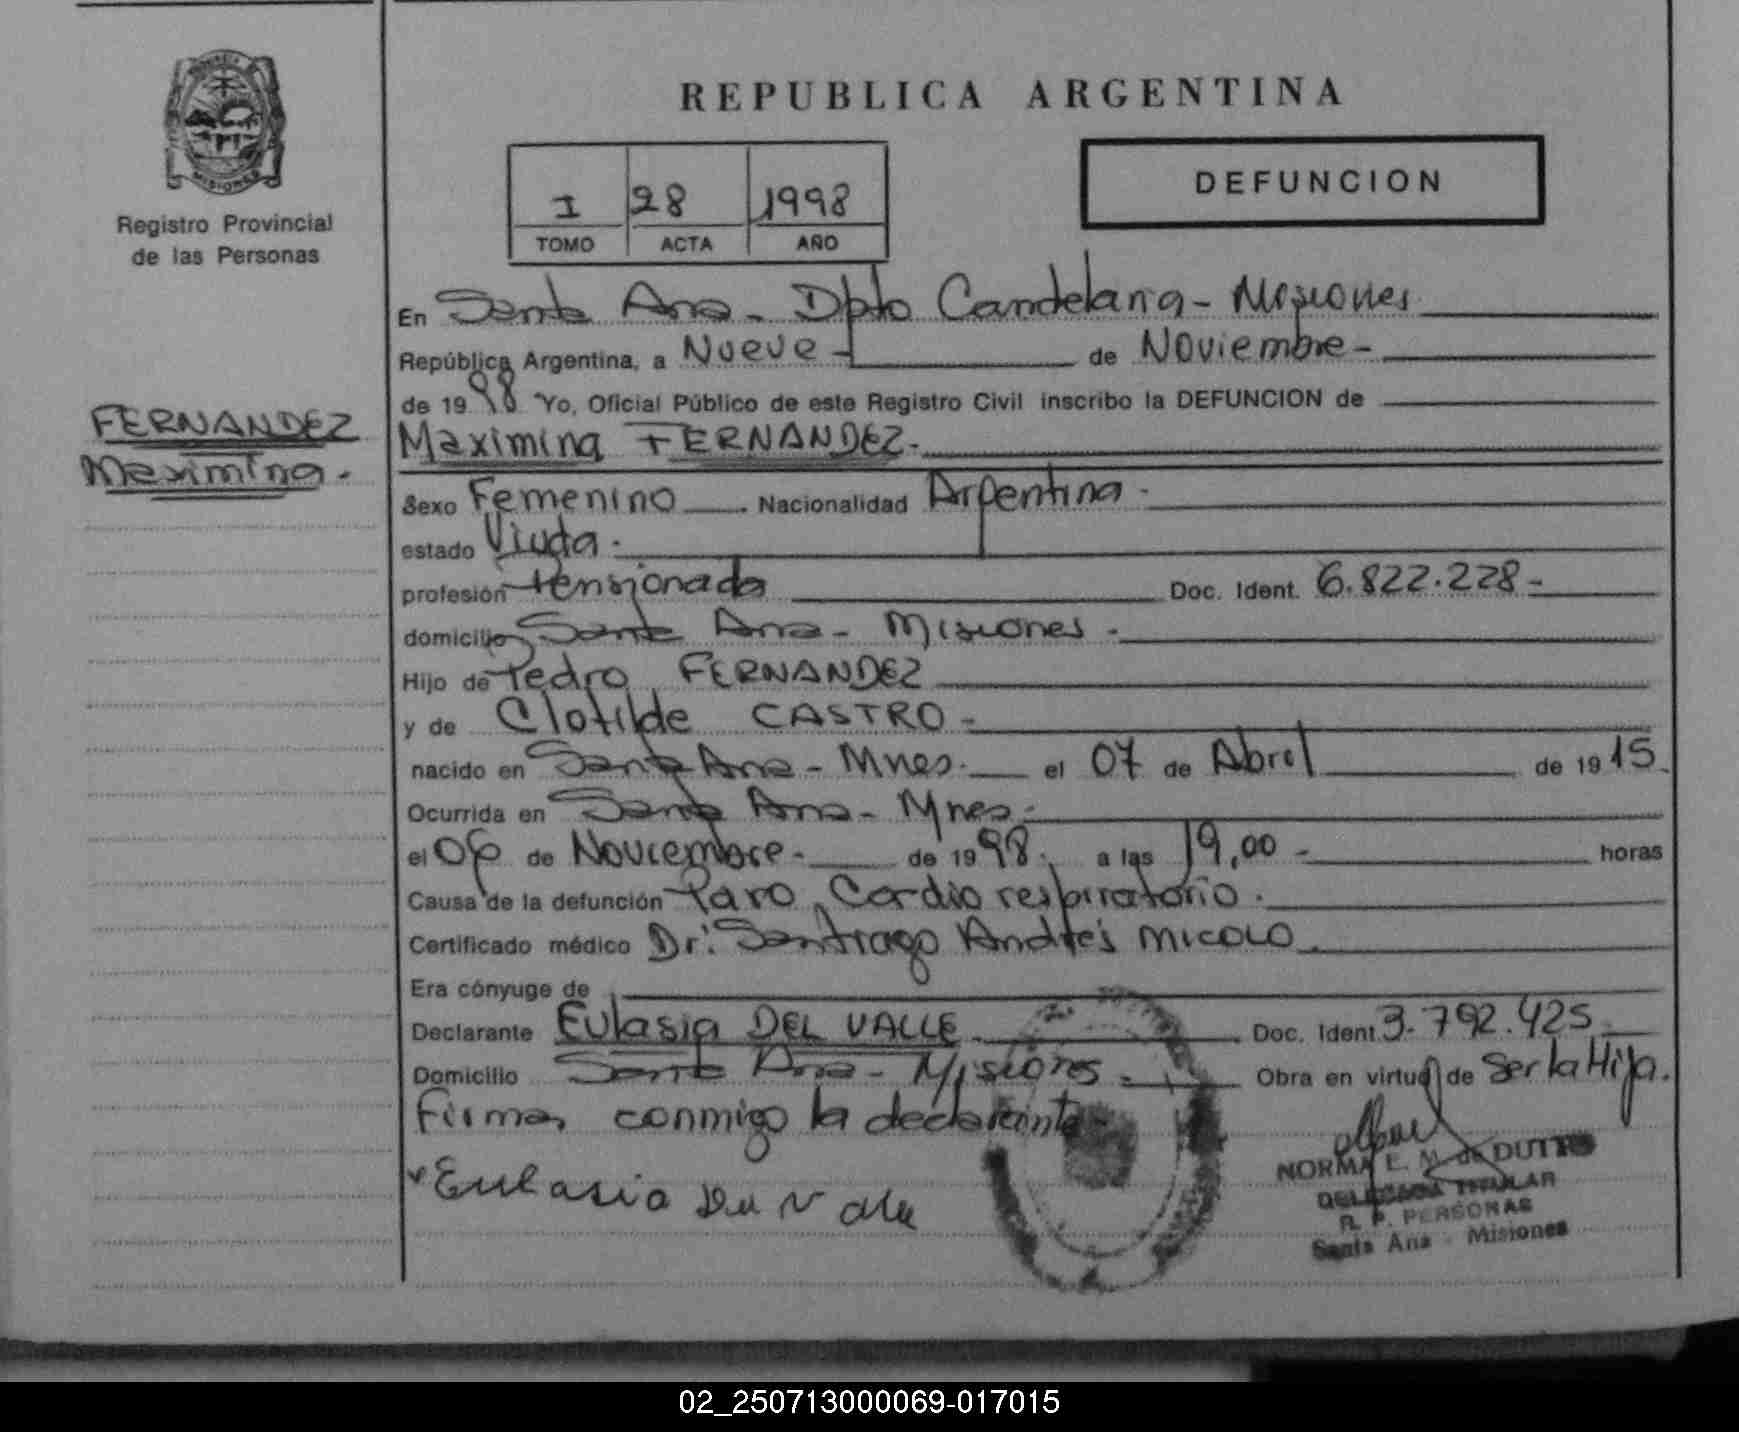 MISIONES
Registro Provincial
de las Personas
FERNANDEZ
Maximina.
REPUBLICA ARGENTINA
I 28 1998
TOMO ACTA AÑO
DEFUNCION
En Santa Ana - Dpto Candelaria - Misiones
República Argentina, a Nueve - de Noviembre -
de 1998 Yo, Oficial Público de este Registro Civil inscribo la DEFUNCION de
Maximina FERNANDEZ.
Sexo Femenino . Nacionalidad Argentina .
estado Viuda .
profesión Pensionada Doc. Ident. 6.822.228 -
domicilio Santa Ana - Misiones .
Hijo de Pedro FERNANDEZ
y de Clotilde CASTRO -
nacido en Santa Ana - Mnes. el 07 de Abril de 1915.
Ocurrida en Santa Ana - Mnes .
el 06 de Noviembre - de 1998. a las 19,00 - horas
Causa de la defunción Paro Cardio respiratorio .
Certificado médico Dr: Santiago Andrés MICOLO .
Era cónyuge de
Declarante Eulasia DEL VALLE . Doc. Ident 3.792.425
Domicilio Santa Ana - Misiones - Obra en virtud de Ser la Hija.
Firma conmigo la declarante -
Eulasia Del Valle
NORMA E. M. de DUTTO
DELEGADA TITULAR
R. P. PERSONAS
Santa Ana - Misiones
02_250713000069-017015